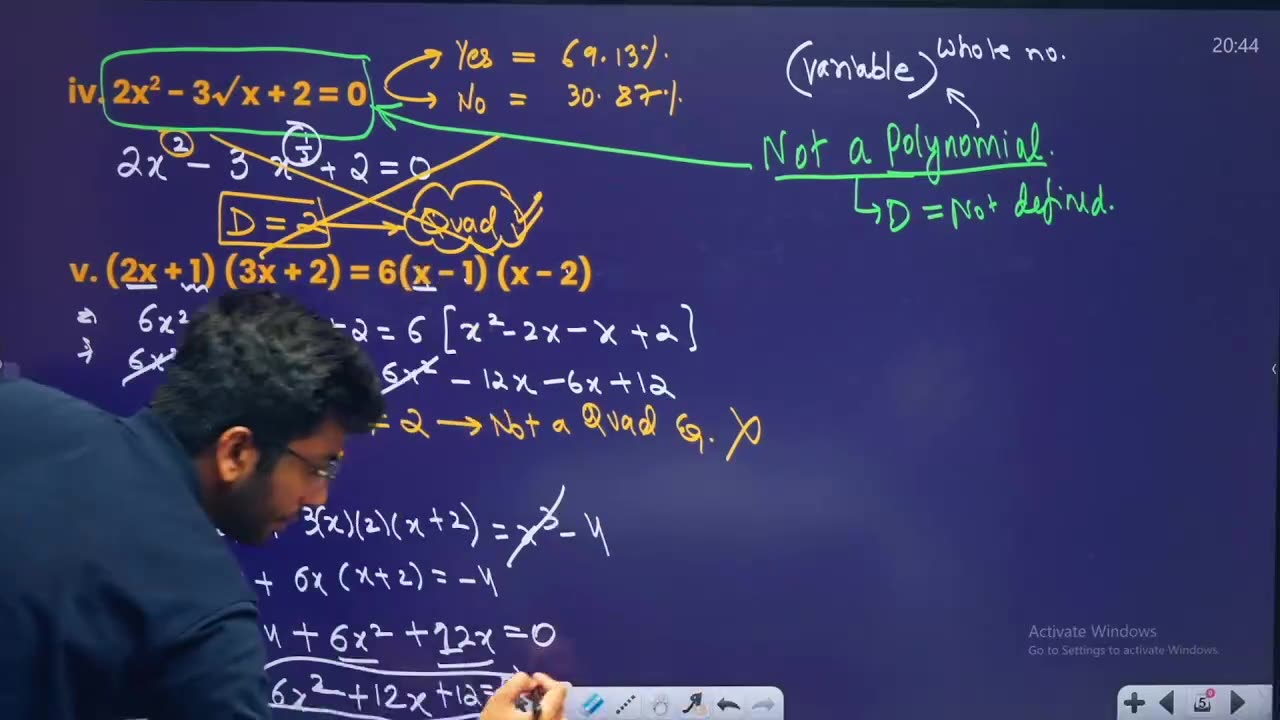 20:44
iv. 2x² - 3√x + 2 = 0
Yes = 69.13%.
No = 30.87%.
(variable)^whole no.
Not a Polynomial.
↳ D = Not defined.
2x² - 3x^½ + 2 = 0
D = 2 → Quad
v. (2x + 1) (3x + 2) = 6(x - 1) (x - 2)
6x² +2 = 6 [x² - 2x - x + 2]
6x² 6x² - 12x - 6x + 12
= 2 → Not a Quad Eq.
3(x)(2)(x+2) = x³ - 4
+ 6x (x+2) = -4
+ 6x² + 12x = 0
6x² + 12x + 12 =
Activate Windows
Go to Settings to activate Windows.
5